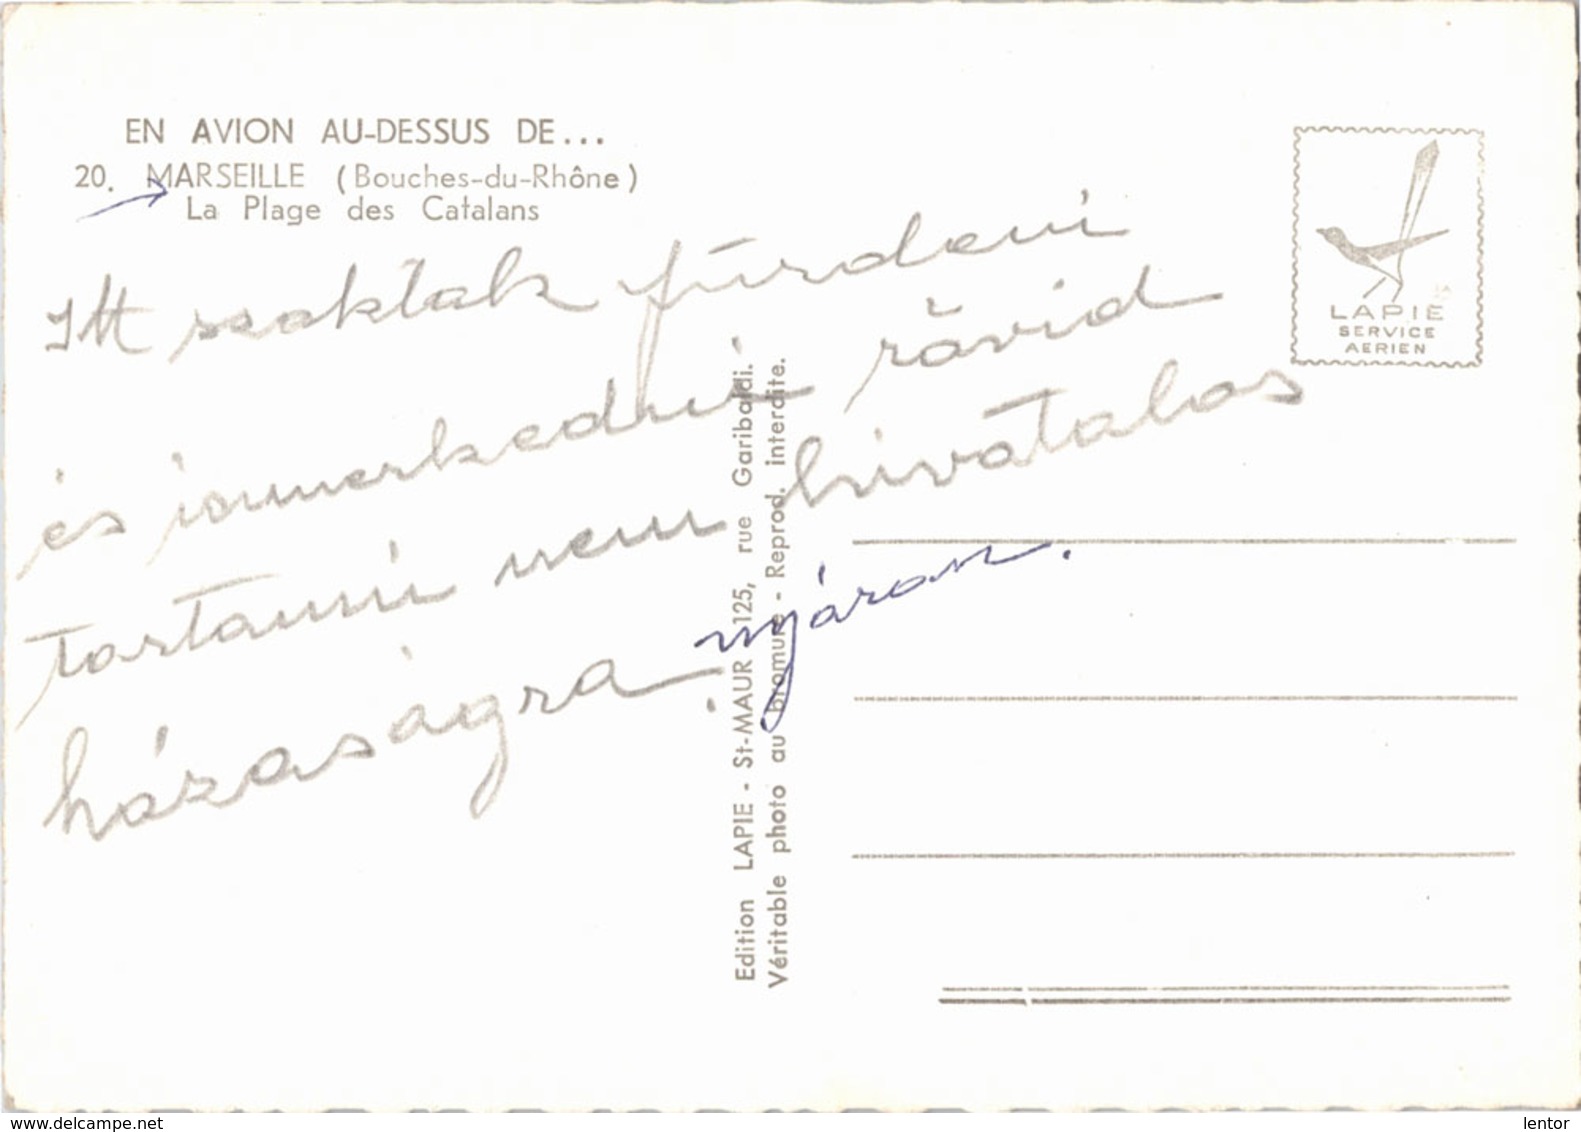 EN AVION AU-DESSUS DE...
20. MARSEILLE (Bouches-du-Rhône)
La Plage des Catalans
Itt szoktak fürdeni
és ismerkedni rövid
tartamú nem hivatalos
házaságra. nyáron.
Edition LAPIE - St-MAUR 125, rue Garibaldi.
Véritable photo au bromure - Reprod. interdite.
LAPIE
SERVICE
AERIEN
www.delcampe.net
lentor